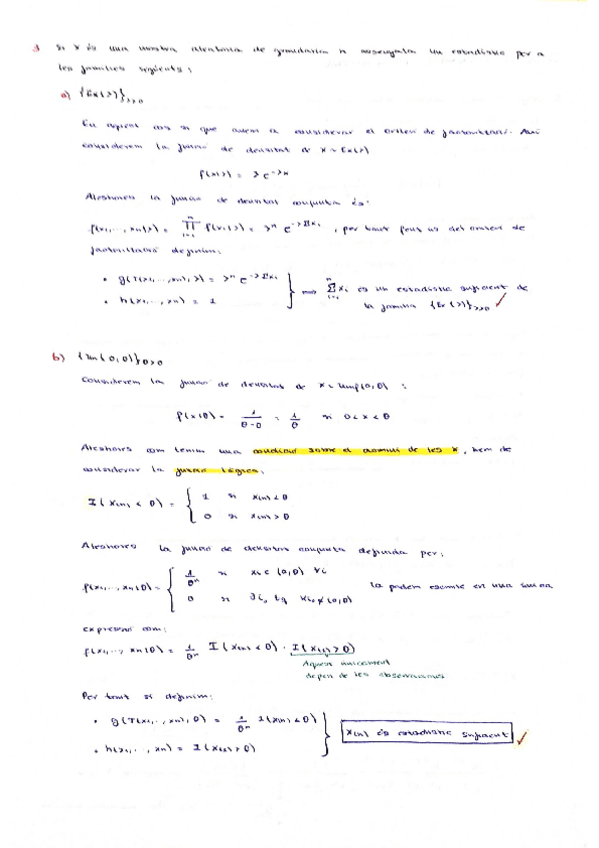 1 Si X és una mostra aleatòria de grandària n aconseguiu un estadístic per a
les famílies següents:
a) {Ex(λ)}λ>0
En aquest cas sí que anem a considerar el criteri de factorització. Així
considerem la funció de densitat de X ~ Ex(λ)
f(x|λ) = λ e^-λx
Aleshores la funció de densitat conjunta és:
f(x1, ..., xn|λ) = ∏ i=1 n f(xi|λ) = λ^n e^-λΣxi , per tant fent ús del criteri de
factorització definim:
• g(T(x1, ..., xn), λ) = λ^n e^-λΣxi
• h(x1, ..., xn) = 1
⟹ Σ i=1 n xi és un estadístic suficient de
la família {Ex(λ)}λ>0 ✓
b) {Un(0,θ)}θ>0
Considerem la funció de densitat de X ~ Unif(0,θ) :
f(x|θ) = 1/(θ-0) = 1/θ si 0<x<θ
Aleshores com tenim una condició sobre el domini de les x, hem de
considerar la funció lògica:
I(x(n) < θ) = { 1 si x(n) < θ
0 si x(n) > θ
Aleshores la funció de densitat conjunta definida per:
f(x1, ..., xn|θ) = { 1/θ^n si xi ∈ (0,θ) ∀i
0 si ∃i0 tq xi0 ∉ (0,θ)
la podem escriure en una única
expressió com:
f(x1, ..., xn|θ) = 1/θ^n I(x(n) < θ) · I(x(1) > 0)
Aquest únicament
depén de les observacions
Per tant si definim:
• g(T(x1, ..., xn), θ) = 1/θ^n I(x(n) < θ)
• h(x1, ..., xn) = I(x(1) > 0)
x(n) és estadístic suficient ✓